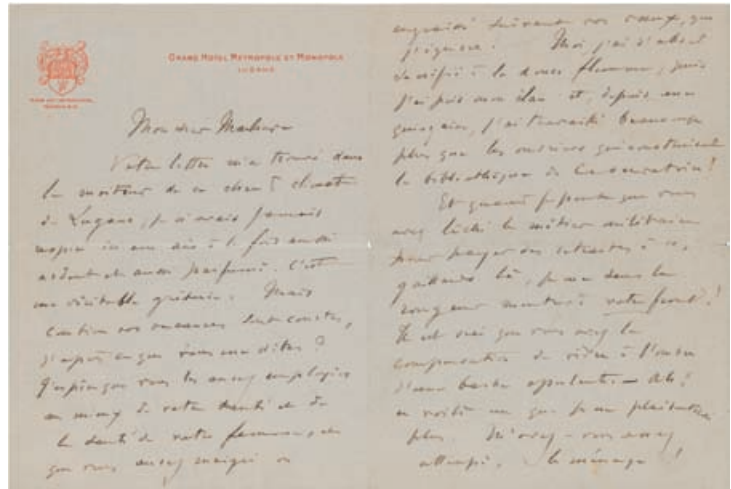 GRAND HOTEL MÉTROPOLE ET MONOPOLE
LUGANO
Monsieur
Votre lettre m'a trouvé dans
la moiteur de ce climat
de Lugano, je n'avais jamais
un air à la fois aussi
ardent et aussi parfumé. C'est
une véritable griserie. Mais
combien vos vacances sont courtes,
d'après ce que vous me dites ?
J'espère que vous les aurez employées
au mieux de votre santé et de
la santé de votre femme, et
que vous aurez maigri ou
engraissé suivant vos vœux, que
j'ignore. Moi, j'ai d'abord
sacrifié à la douce flemme, puis
j'ai pris mon élan et, depuis une
quinzaine, j'ai travaillé beaucoup
plus que les ouvriers qui construisent
la bibliothèque du Conservatoire !
Et quand je pense que vous
avez lâché le métier militaire
pour payer des retraites à ces
gaillards là, je me dans le
rougeur monter à votre front !
Il est vrai que vous avez la
compensation de à l'ombre
d'une barbe opulente — ah !
en voilà un que je ne
plus. N'avez-vous assez
attrapé, le ménage !